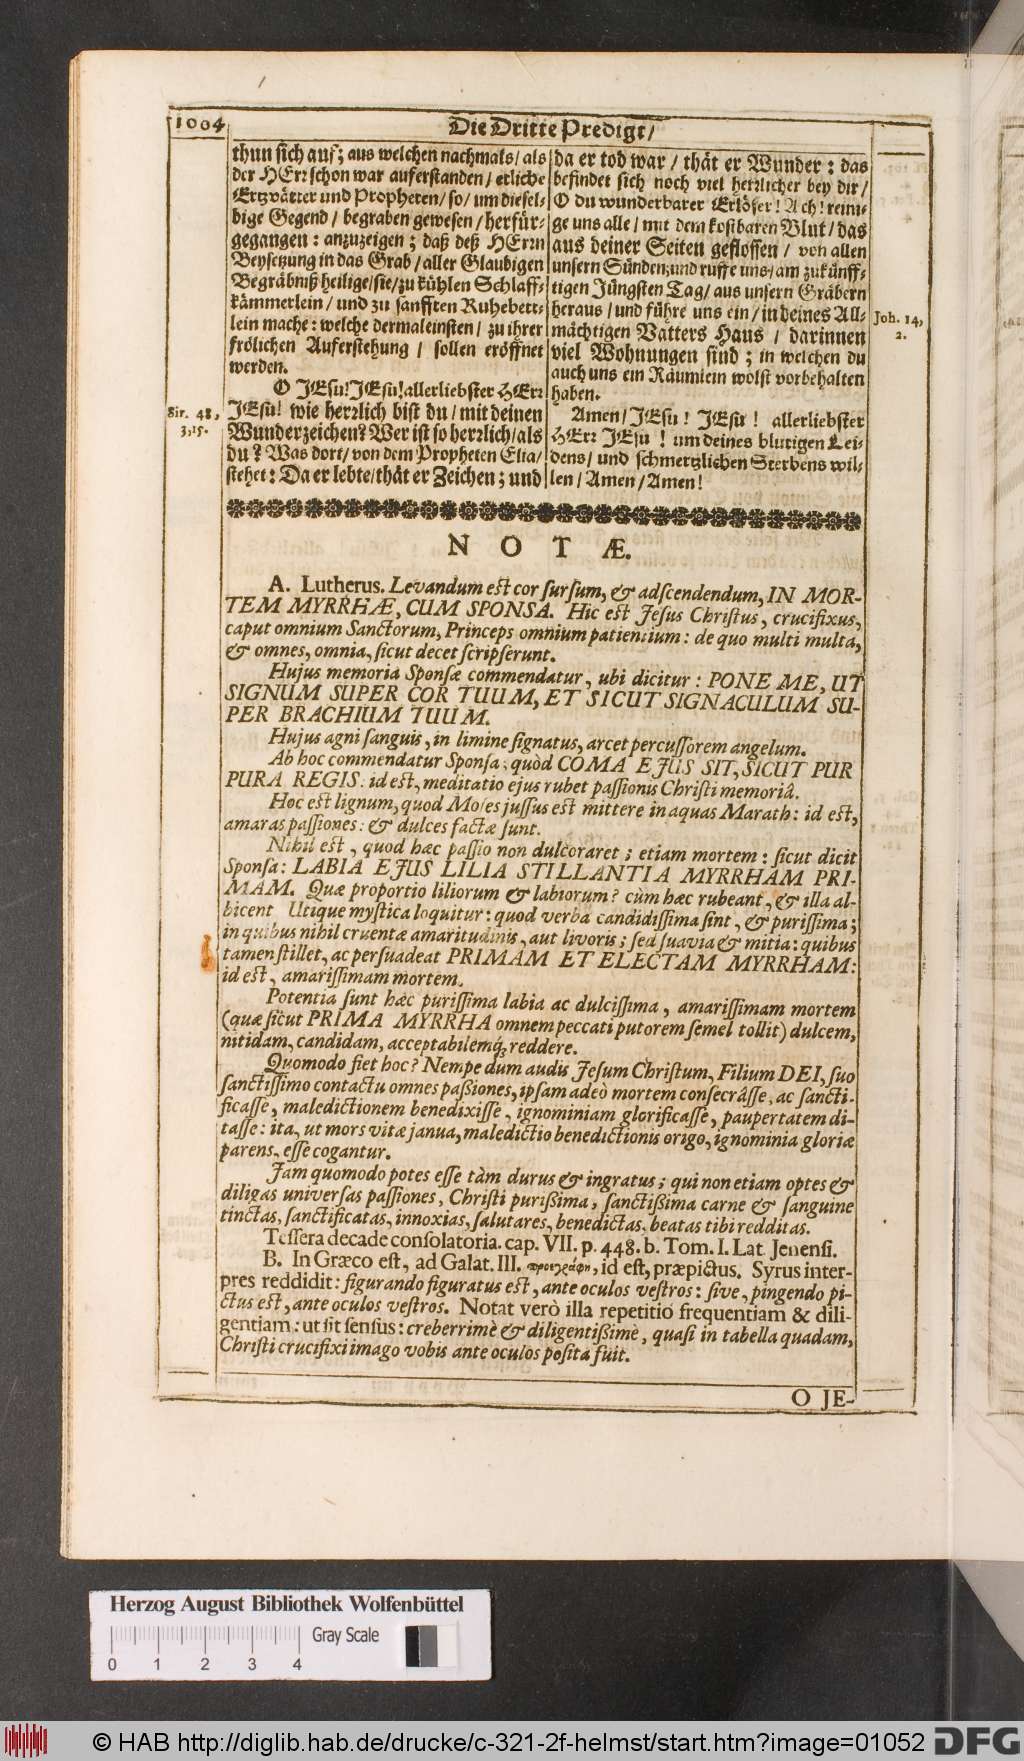 1004
Die Dritte Predigt/
thun sich auf; aus welchen nachmals/ als
der HErr schon war auferstanden/ etliche
Ertzvätter und Propheten/ so/ um diesel-
bige Gegend/ begraben gewesen/ herfür-
gegangen: anzuzeigen; daß deß HErrn
Beysetzung in das Grab/ aller Glaubigen
Begräbniß heilige/ sie/ zu kühlen Schlaff-
kämmerlein/ und zu sanfften Ruhebett-
lein mache: welche dermaleinsten/ zu ihrer
frölichen Auferstehung/ sollen eröffnet
werden.
O JEsu! JEsu! allerliebster HErr
JEsu! wie herrlich bist du/ mit deinen
Wunderzeichen? Wer ist so herrlich/ als
du? Was dort/ von dem Propheten Elia/
stehet: Da er lebte/ thät er Zeichen; und
Sir. 48,
3,15.
da er tod war/ thät er Wunder: das
befindet sich noch viel herrlicher bey dir/
O du wunderbarer Erlöser! Ach! reini-
ge uns alle/ mit dem kostbaren Blut/ das
aus deiner Seiten geflossen/ von allen
unsern Sünden; und ruffe uns/ am zukünff-
tigen Jüngsten Tag/ aus unsern Gräbern
heraus/ und führe uns ein/ in deines All-
mächtigen Vatters Haus/ darinnen
viel Wohnungen sind; in welchen du
auch uns ein Räumlein wolst vorbehalten
haben.
Amen/ JEsu! JEsu! allerliebster
HErr JEsu! um deines blutigen Lei-
dens/ und schmertzlichen Sterbens wil-
len/ Amen/ Amen!
Joh. 14,
2.
NOTÆ.
A. Lutherus. Levandum est cor sursum, & adscendendum, IN MOR-
TEM MYRRHÆ, CUM SPONSA. Hic est Jesus Christus, crucifixus,
caput omnium Sanctorum, Princeps omnium patientium: de quo multi multa,
& omnes, omnia, sicut decet scripserunt.
Hujus memoria Sponsæ commendatur, ubi dicitur: PONE ME, UT
SIGNUM SUPER COR TUUM, ET SICUT SIGNACULUM SU-
PER BRACHIUM TUUM.
Hujus agni sanguis, in limine signatus, arcet percussorem angelum.
Ab hoc commendatur Sponsa; quòd COMA EJUS SIT, SICUT PUR
PURA REGIS: id est, meditatio ejus rubet passionis Christi memoriâ.
Hoc est lignum, quod Moses jussus est mittere in aquas Marath: id est,
amaras passiones: & dulces factæ sunt.
Nihil est, quod hæc passio non dulcoraret; etiam mortem: sicut dicit
Sponsa: LABIA EJUS LILIA STILLANTIA MYRRHAM PRI-
MAM. Quæ proportio liliorum & labiorum? cùm hæc rubeant, & illa al-
bicent Utique mystica loquitur: quod verba candidissima sint, & purissima;
in quibus nihil cruentæ amaritudinis, aut livoris; sed suavia & mitia: quibus
tamen stillet, ac persuadeat PRIMAM ET ELECTAM MYRRHAM:
id est, amarissimam mortem.
Potentia sunt hæc purissima labia ac dulcissima, amarissimam mortem
(quæ sicut PRIMA MYRRHA omnem peccati putorem semel tollit) dulcem,
nitidam, candidam, acceptabilemq; reddere.
Quomodo fiet hoc? Nempe dum audis Jesum Christum, Filium DEI, suo
sanctissimo contactu omnes passiones, ipsam adeò mortem consecrâsse, ac sancti-
ficasse, maledictionem benedixisse, ignominiam glorificasse, paupertatem di-
tasse: ita, ut mors vitæ janua, maledictio benedictionis origo, ignominia gloriæ
parens, esse cogantur.
Jam quomodo potes esse tàm durus & ingratus; qui non etiam optes &
diligas universas passiones, Christi purissima, sanctissima carne & sanguine
tinctas, sanctificatas, innoxias, salutares, benedictas, beatas tibi redditas.
Tessera decade consolatoria. cap. VII. p. 448. b. Tom. I. Lat. Jenensi.
B. In Græco est, ad Galat. III. προεγράφη, id est, præpictus. Syrus inter-
pres reddidit: figurando figuratus est, ante oculos vestros: sive, pingendo pi-
ctus est, ante oculos vestros. Notat verò illa repetitio frequentiam & dili-
gentiam: ut sit sensus: creberrimè & diligentissimè, quasi in tabella quadam,
Christi crucifixi imago vobis ante oculos posita fuit.
O JE-
Herzog August Bibliothek Wolfenbüttel
Gray Scale
0 1 2 3 4
© HAB http://diglib.hab.de/drucke/c-321-2f-helmst/start.htm?image=01052
DFG